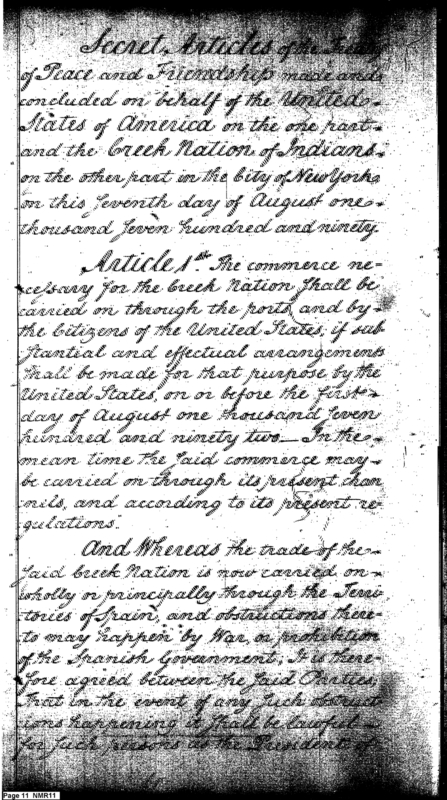 Secret Articles of the Treaty
of Peace and Friendship made and
concluded on behalf of the United
States of America on the one part
and the Creek Nation of Indians
on the other part in the City of New York
on this Seventh day of August one
thousand Seven hundred and ninety.
Article 1st. The commerce ne-
cessary for the Creek Nation shall be
carried on through the ports, and by
the Citizens of the United States, if sub
stantial and effectual arrangements
shall be made for that purpose by the
United States, on or before the first
day of August one thousand Seven
hundred and ninety two— In the
mean time the said commerce may
be carried on through its present chan
nels, and according to its present re-
gulations.
And Whereas the trade of the
said Creek Nation is now carried on
wholly or principally through the Terri
tories of Spain, and obstructions there-
to may happen by War, or prohibition
of the Spanish Government; It is there-
fore agreed between the said Parties,
that in the event of any such obstruct
ions happening it shall be lawful
for such persons as the President of
Page 11 NMR11